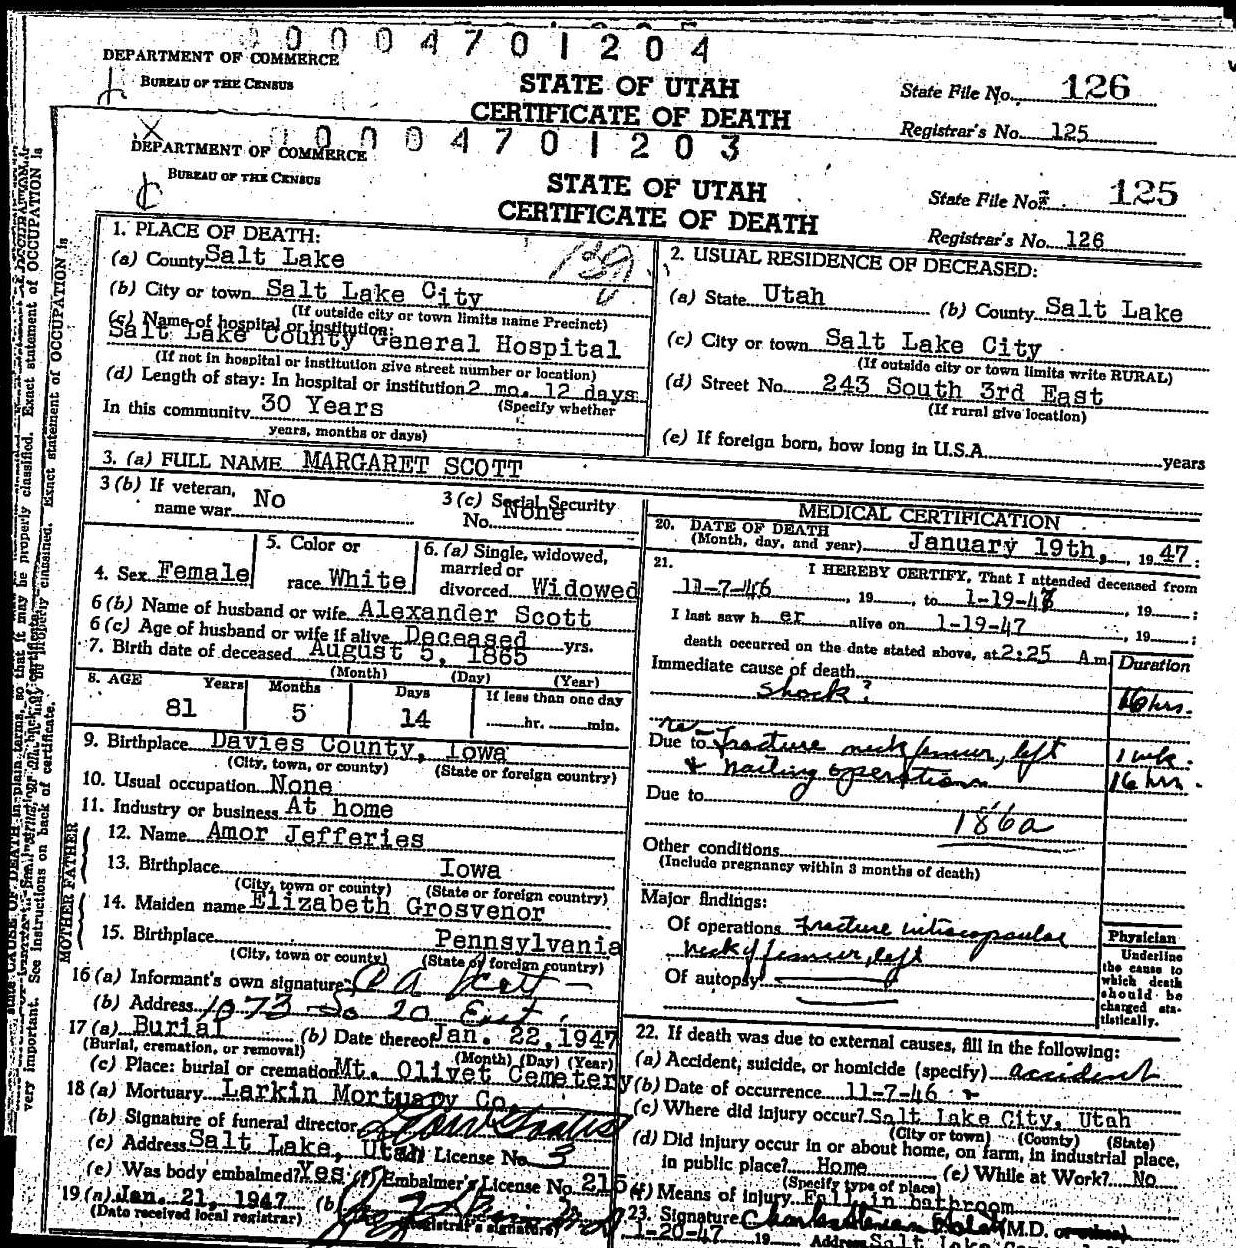 0 0 0 0 4 7 0 1 2 0 4
DEPARTMENT OF COMMERCE
BUREAU OF THE CENSUS
STATE OF UTAH
CERTIFICATE OF DEATH
State File No. 126
Registrar's No. 125
0 0 0 0 4 7 0 1 2 0 3
DEPARTMENT OF COMMERCE
BUREAU OF THE CENSUS
STATE OF UTAH
CERTIFICATE OF DEATH
State File No. 125
Registrar's No. 126
1. PLACE OF DEATH:
(a) County Salt Lake
(b) City or town Salt Lake City
(If outside city or town limits name Precinct)
(c) Name of hospital or institution:
Salt Lake County General Hospital
(If not in hospital or institution give street number or location)
(d) Length of stay: In hospital or institution 2 mo. 12 days
(Specify whether
In this community 30 Years
years, months or days)
2. USUAL RESIDENCE OF DECEASED:
(a) State Utah (b) County Salt Lake
(c) City or town Salt Lake City
(If outside city or town limits write RURAL)
(d) Street No. 243 South 3rd East
(If rural give location)
(e) If foreign born, how long in U.S.A. years
3. (a) FULL NAME MARGARET SCOTT
3 (b) If veteran, name war No
3 (c) Social Security No. None
4. Sex Female
5. Color or race White
6. (a) Single, widowed, married or divorced Widowed
6 (b) Name of husband or wife Alexander Scott
6 (c) Age of husband or wife if alive Deceased yrs.
7. Birth date of deceased August 5, 1865
(Month) (Day) (Year)
8. AGE Years Months Days If less than one day
81 5 14 hr. min.
9. Birthplace Davies County, Iowa
(City, town, or county) (State or foreign country)
10. Usual occupation None
11. Industry or business At home
FATHER
12. Name Amor Jefferies
13. Birthplace Iowa
(City, town or county) (State or foreign country)
MOTHER
14. Maiden name Elizabeth Grosvenor
15. Birthplace Pennsylvania
(City, town or county) (State or foreign country)
16 (a) Informant's own signature
(b) Address 1073 So 20 East
17 (a) Burial (b) Date thereof Jan. 22, 1947
(Burial, cremation, or removal) (Month) (Day) (Year)
(c) Place: burial or cremation Mt. Olivet Cemetery
18 (a) Mortuary Larkin Mortuary Co.
(b) Signature of funeral director
(c) Address Salt Lake, Utah (d) License No. 3
(e) Was body embalmed? Yes (f) Embalmer's License No. 215
19 (a) Jan. 21, 1947 (b)
(Date received local registrar) (Registrar's signature)
MEDICAL CERTIFICATION
20. DATE OF DEATH
(Month, day, and year) January 19th, 1947:
21. I HEREBY CERTIFY, That I attended deceased from
11-7-46, 19, to 1-19-47, 19;
I last saw her alive on 1-19-47, 19;
death occurred on the date stated above, at 2:25 A.m. Duration
Immediate cause of death
Shock? 16 hrs.
re-
Due to fracture neck femur, left 1 wk.
& nailing operation 16 hrs.
Due to
186a
Other conditions
(Include pregnancy within 3 months of death)
Major findings:
Of operations Fracture intracapsular
neck of femur, left
Of autopsy
Physician
Underline the cause to which death should be charged statistically.
22. If death was due to external causes, fill in the following:
(a) Accident, suicide, or homicide (specify) accident
(b) Date of occurrence 11-7-46
(c) Where did injury occur? Salt Lake City, Utah
(City or town) (County) (State)
(d) Did injury occur in or about home, on farm, in industrial place,
in public place? Home (e) While at Work? No
(Specify type of place)
(f) Means of injury Fall in bathroom
23. Signature (M.D. or other)
1-20-47 19 Address Salt Lake